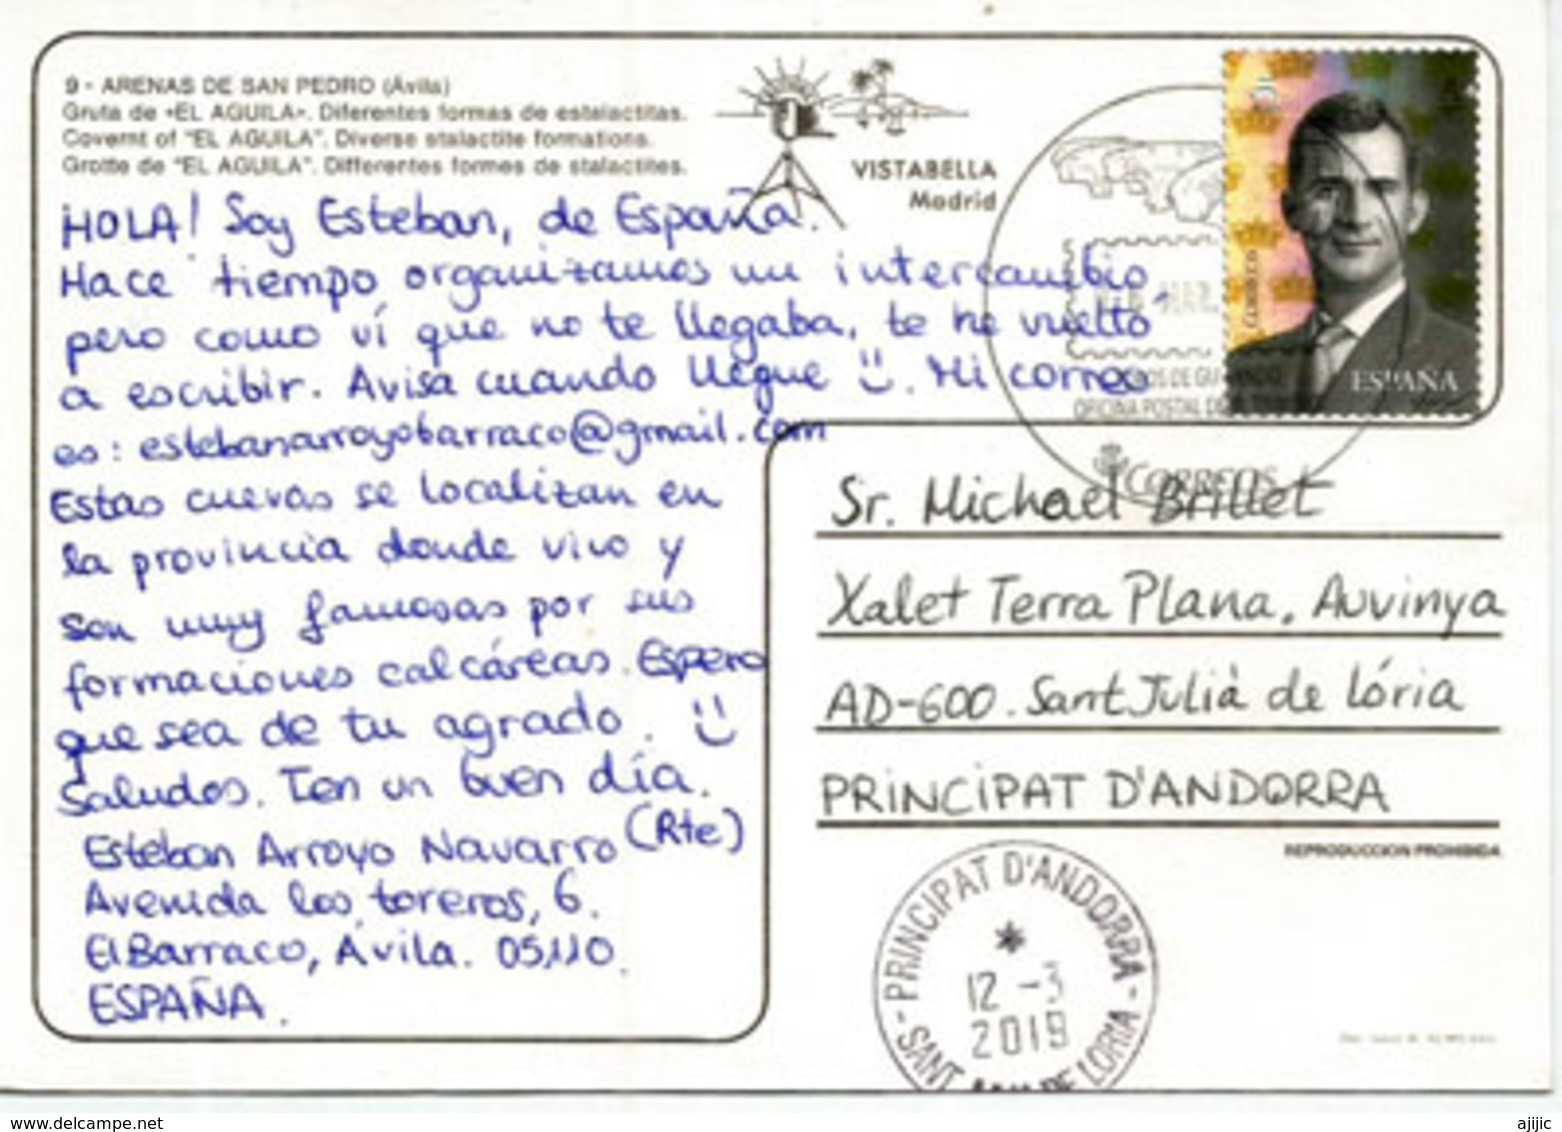 9 - ARENAS DE SAN PEDRO (Ávila)
Gruta de «EL AGUILA». Diferentes formas de estalactitas.
Covernt of "EL AGUILA". Diverse stalactite formations.
Grotte de "EL AGUILA". Differentes formes de stalactites.
VISTABELLA
Madrid
¡HOLA! Soy Esteban, de España.
Hace tiempo organizamos un intercambio,
pero como ví que no te llegaba, te he vuelto
a escribir. Avisa cuando llegue Ü. Mi correo
es: estebanarroyobarraco@gmail.com
Estas cuevas se localizan en
la provincia donde vivo y
son muy famosas por sus
formaciones calcáreas. Espero
que sea de tu agrado. Ü
Saludos. Ten un buen día.
Esteban Arroyo Navarro (Rte)
Avenida los toreros, 6.
El Barraco, Ávila. 05110.
ESPAÑA.
Correos
ESPAÑA
MAR.
OFICINA POSTAL
CORREOS
Sr. Michael Brillet
Xalet Terra Plana, Auvinya
AD-600. Sant Julià de Lória
PRINCIPAT D'ANDORRA
REPRODUCCION PROHIBIDA
- PRINCIPAT D'ANDORRA -
12 -3
2019
SANT DE LORIA
delcampe.net
ajijic